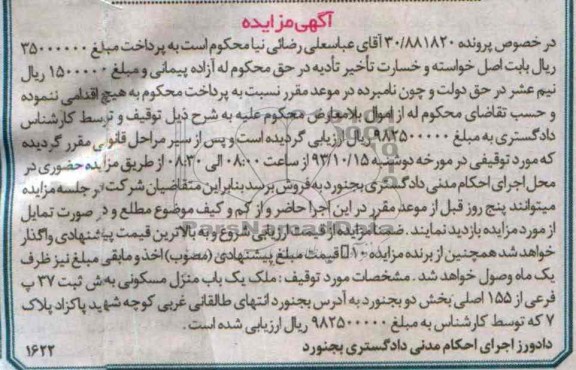 آگهی مزایده
در خصوص پرونده ۳۰/۸۸۱۸۲۰ آقای عباسعلی رضائی نیا محکوم است به پرداخت مبلغ ۳۵۰۰۰۰۰۰
ریال بابت اصل خواسته و خسارت تأخیر تأدیه در حق محکوم له آزاده پیمانی و مبلغ ۱۵۰۰۰۰۰ ریال
نیم عشر در حق دولت و چون نامبرده در موعد مقرر نسبت به پرداخت محکوم به هیچ اقدامی ننموده
و حسب تقاضای محکوم له از اموال بلامعارض محکوم علیه به شرح ذیل توقیف و توسط کارشناس
دادگستری به مبلغ ۹۸۲۵۰۰۰۰۰ ریال ارزیابی گردیده است و پس از سیر مراحل قانونی مقرر گردیده
که مورد توقیفی در مورخه دوشنبه ۹۳/۱۰/۱۵ از ساعت ۰۸:۰۰ الی ۰۸:۳۰ از طریق مزایده حضوری در
محل اجرای احکام مدنی دادگستری بجنورد به فروش برسد بنابراین متقاضیان شرکت در جلسه مزایده
میتوانند پنج روز قبل از موعد مقرر در این اجرا حاضر و از کم و کیف موضوع مطلع و در صورت تمایل
از مورد مزایده بازدید نمایند. ضمنا مزایده از قیمت ارزیابی شروع و به بالاترین قیمت پیشنهادی واگذار
خواهد شد همچنین از برنده مزایده ۱۰ قیمت مبلغ پیشنهادی (مصوب) اخذ و مابقی مبلغ نیز ظرف
یک ماه وصول خواهد شد. مشخصات مورد توقیف: ملک یک باب منزل مسکونی به ش ثبت ۳۷ پ
فرعی از ۱۵۵ اصلی بخش دو بجنورد به آدرس بجنورد انتهای طالقانی غربی کوچه شهید پاکزاد پلاک
۷ که توسط کارشناس به مبلغ ۹۸۲۵۰۰۰۰۰ ریال ارزیابی شده است.
دادورز اجرای احکام مدنی دادگستری بجنورد
۱۶۲۲